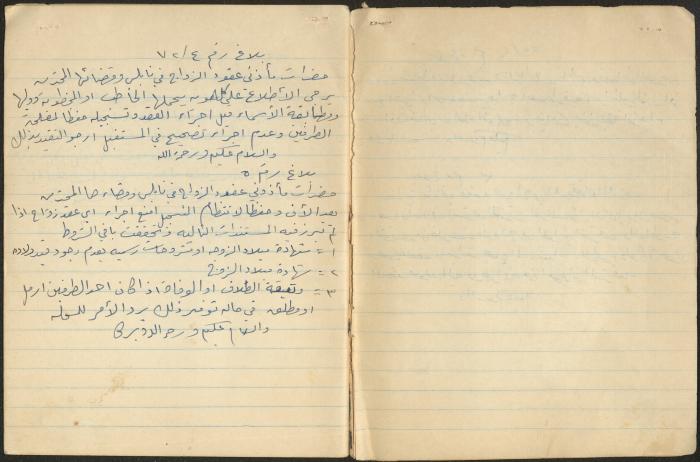 بلاغ رقم ٧٢/٤
حضرات مأذوني عقود الزواج في نابلس وقضائها المحترمين
يرجى الاطلاع على كل هوية يحملها الخاطب او المخطوبة
ومطابقة الأسماء قبل اجراء العقد وتسجيله حفظا لمصلحة
الطرفين وعدم اجراء تصحيح في المستقبل ارجو التقيد بذلك
والسلام عليكم ورحمة الله
بلاغ رقم ٥
حضرات مأذوني عقود الزواج في نابلس وقضاءها المحترمين
بعد الآن وحفظا لانتظام التسجيل امنع اجراء اي عقد زواج اذا
لم تبرز فيه المستندات التالية وتحققت باقي الشروط
١ = شهادة ميلاد الزوجة او مشروحات رسمية بعدم وجود قيد ولادة
٢ = شهادة ميلاد الزوج
٣ = وثيقة الطلاق او الوفاة اذا كان احد الطرفين ارمل
او مطلق في حالة توفر ذلك يرد الأمر للمحكمة
والسلام عليكم ورحمة الله وبركاته